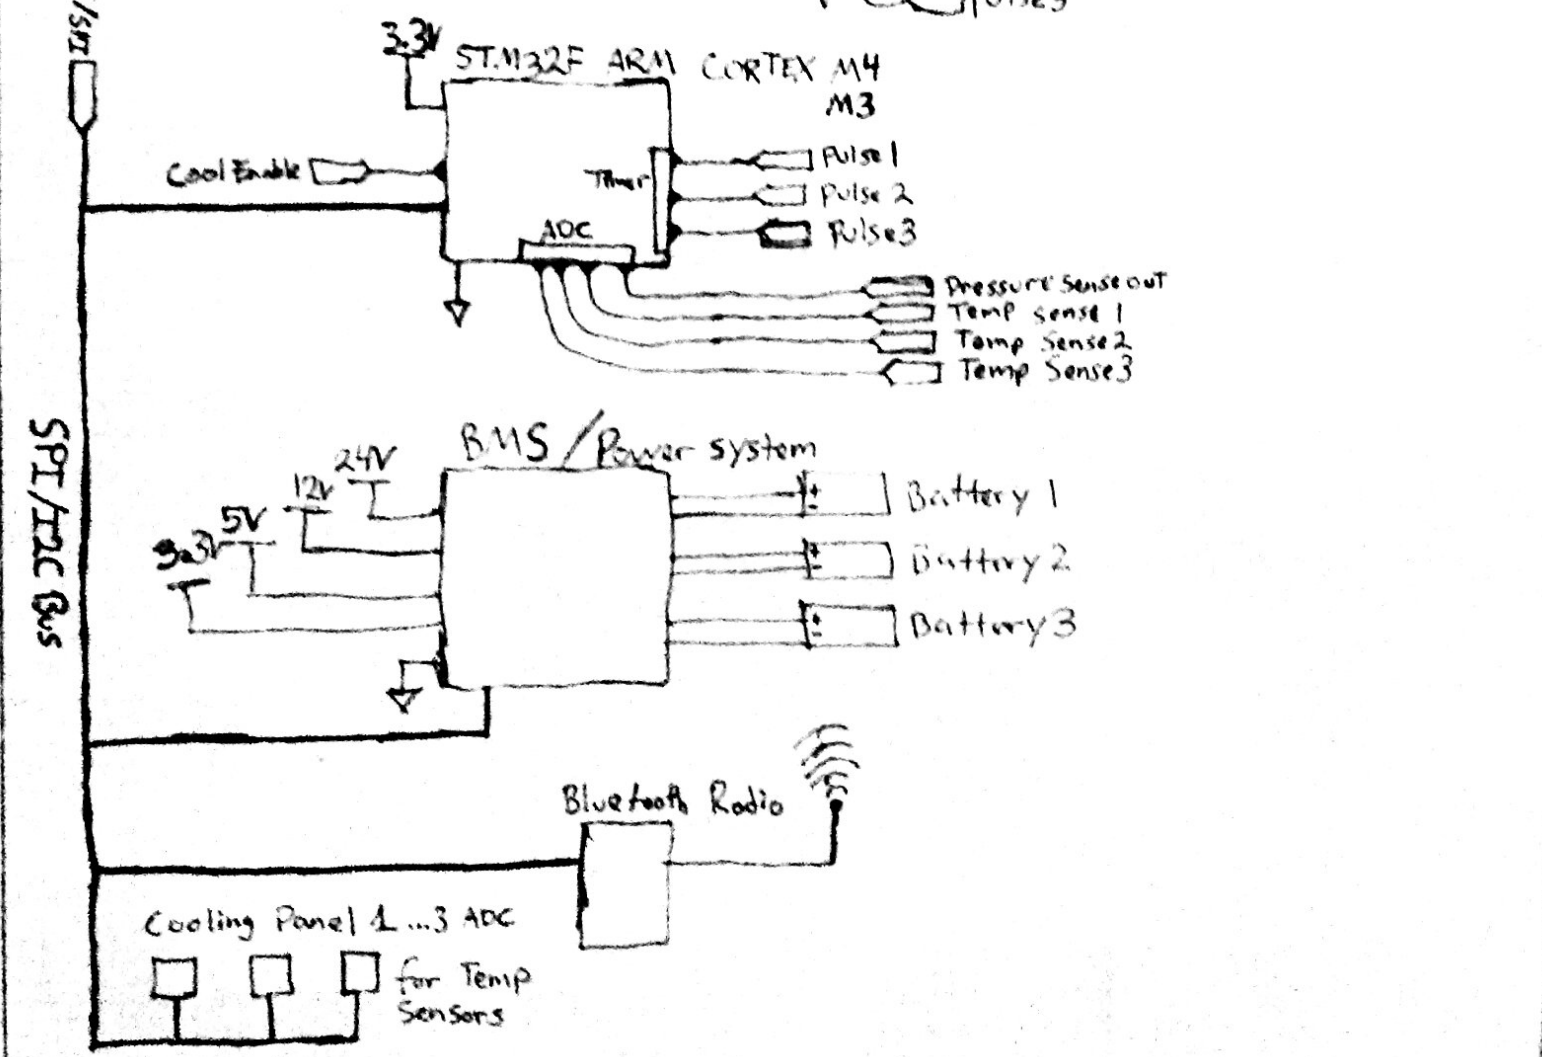 3.3V
STM32F ARM CORTEX M4
M3
Cool Enable
Timer
Pulse 1
Pulse 2
Pulse3
ADC
Pressure Sense out
Temp sense 1
Temp Sense2
Temp Sense3
SPI/I2C Bus
BMS/Power system
24V
12V
5V
3.3V
+
-
Battery 1
+
-
Battery 2
+
-
Battery 3
Bluetooth Radio
Cooling Panel 1...3 ADC
for Temp
Sensors